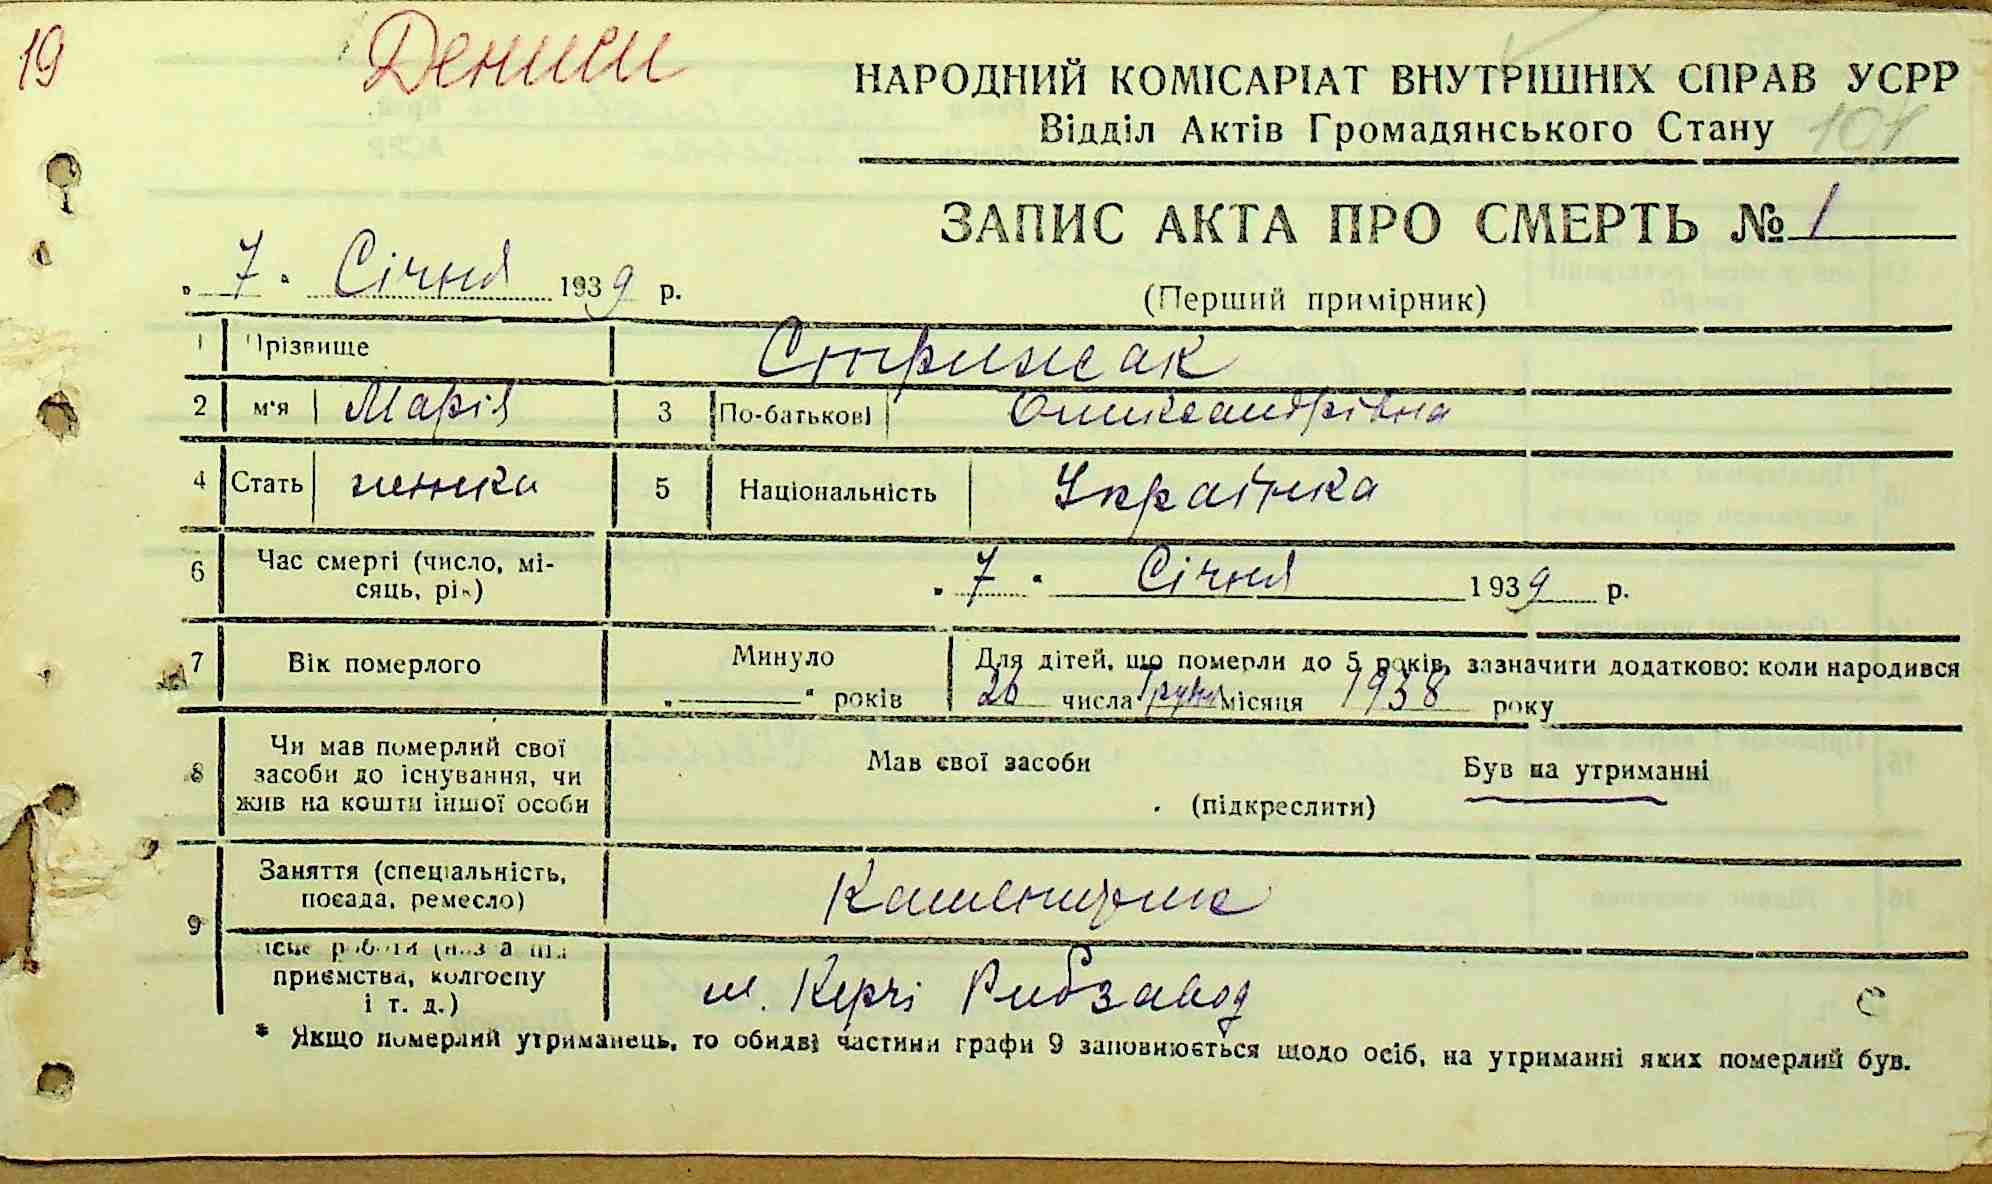 19 Дениси
НАРОДНИЙ КОМІСАРІАТ ВНУТРІШНІХ СПРАВ УСРР
Відділ Актів Громадянського Стану 101
ЗАПИС АКТА ПРО СМЕРТЬ № 1
„ 7 “ Січня 1939 р.
(Перший примірник)
1 Прізвище Стрижак
2 м'я Марія 3 По-батькові Олександрівна
4 Стать жінка 5 Національність Українка
6 Час смерті (число, мі-
сяць, рік) „ 7 “ Січня 1939 р.
7 Вік померлого Минуло
„ — “ років
Для дітей, що померли до 5 років, зазначити додатково: коли народився
26 числа Грудн місяця 1938 року
8 Чи мав померлий свої
засоби до існування, чи
жив на кошти іншої особи
Мав свої засоби Був на утриманні
(підкреслити)
9 Заняття (спеціальність,
посада, ремесло) Каменщик
ісце роботи (назва під
приємства, колгоспу
і т. д.) м. Керчі Рибзавод
* Якщо померлий утриманець, то обидві частини графи 9 заповнюється щодо осіб, на утриманні яких померлий був.